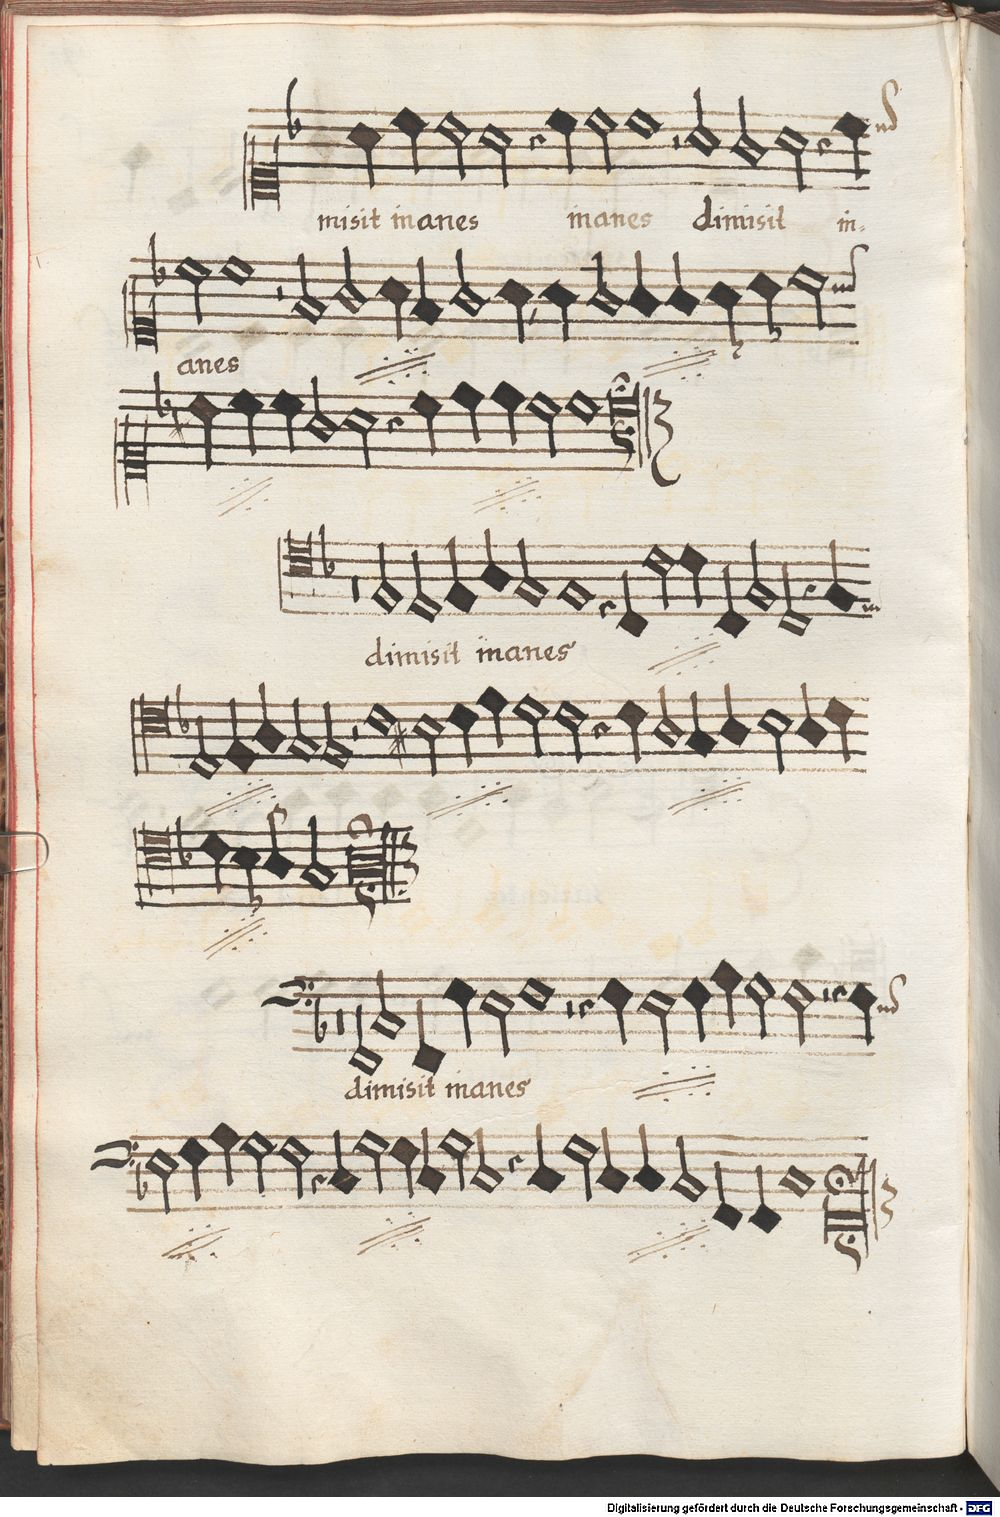 misit inanes inanes dimisit in-
anes
dimisit inanes
dimisit inanes
Digitalisierung gefördert durch die Deutsche Forschungsgemeinschaft - DFG